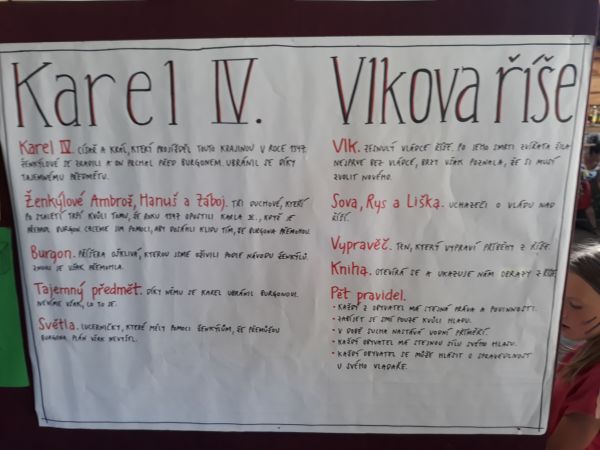 Karel IV.
Karel IV. CÍSAŘ A KRÁL, KTERÝ PROJÍŽDĚL TOUTO KRAJINOU V ROCE 1347.
ŽENKÝLOVÉ SE ZRADILI A ON PRCHAL PŘED BURGONEM. UBRÁNIL SE DÍKY
TAJEMNÉMU PŘEDMĚTU.
Ženkýlové Ambrož, Hanuš a Záboj. TŘI DUCHOVÉ, KTEŘÍ
PO STALETÍ TRPÍ KVŮLI TOMU, ŽE ROKU 1347 OPUSTILI KARLA IV., KDYŽ JE
PŘEPADL BURGON CHCEME JIM POMOCI, ABY DOSÁHLI KLIDU TÍM, ŽE BURGONA PŘEMOHOU.
Burgon. PŘÍŠERA OŠKLIVÁ, KTEROU JSME OŽIVILI PODLE NÁVODU ŽENKÝLŮ.
ZNOVU JE VŠAK PŘEMOHLA.
Tajemný předmět. DÍKY NĚMU SE KAREL UBRÁNIL BURGONOVI.
NEVÍME VŠAK, CO TO JE.
Světla. LUCERNIČKY, KTERÉ MĚLY POMOCI ŽENKÝLŮM, ŽE PŘEMŮŽOU
BURGONA. PLÁN VŠAK NEVYŠEL.
Vlkova říše
Vlk. ZESNULÝ VLÁDCE ŘÍŠE. PO JEHO SMRTI ZVÍŘATA ŽILA
NEJPRVE BEZ VLÁDCE, BRZY VŠAK POZNALA, ŽE SI MUSÍ
ZVOLIT NOVÉHO.
Sova, Rys a Liška. UCHAZEČI O VLÁDU NAD
ŘÍŠÍ.
Vypravěč. TEN, KTERÝ VYPRAVÍ PŘÍBĚHY Z ŘÍŠE.
Kniha. OTEVÍRÁ SE A UKAZUJE NÁM OBRAZY Z ŘÍŠE
Pět pravidel.
• KAŽDÝ Z OBYVATEL MÁ STEJNÁ PRÁVA A POVINNOSTI.
• ZABÍJET SE SMÍ POUZE KVŮLI HLADU.
• V DOBĚ SUCHA NASTÁVÁ VODNÍ PŘÍMĚŘÍ.
• KAŽDÝ OBYVATEL MÁ STEJNOU SÍLU SVÉHO HLASU.
• KAŽDÝ OBYVATEL SE MŮŽE HLÁSIT O SPRAVEDLNOST
U SVÉHO VLADAŘE.